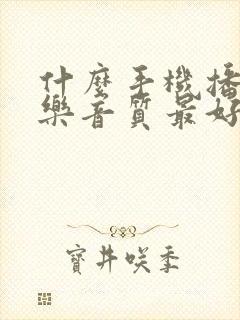 什麼手機播
樂音質最好
寶井咲季